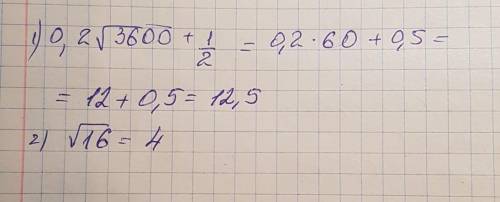 1) 0,2√3600 + 1/2 = 0,2·60 + 0,5 =
= 12 + 0,5 = 12,5
2) √16 = 4